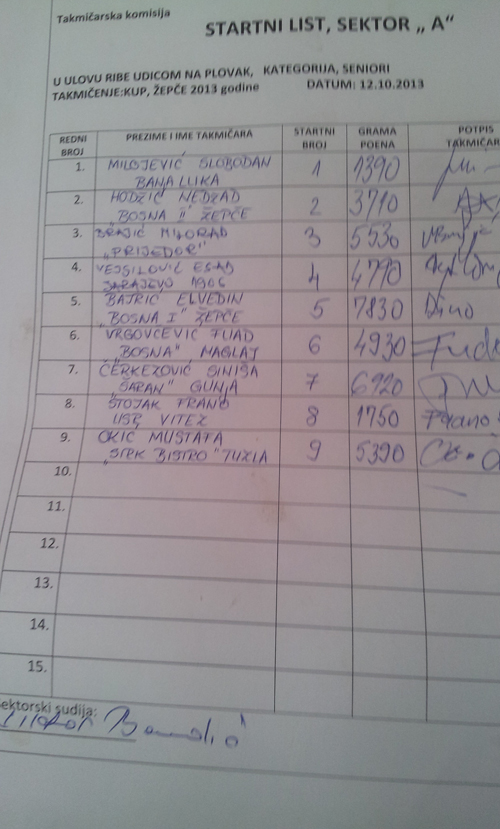 Takmičarska komisija
STARTNI LIST, SEKTOR „ A“
U ULOVU RIBE UDICOM NA PLOVAK, KATEGORIJA, SENIORI
TAKMIČENJE:KUP, ŽEPČE 2013 godine DATUM: 12.10.2013
REDNI BROJ PREZIME I IME TAKMIČARA STARTNI BROJ GRAMA POENA POTPIS TAKMIČAR
1. MILOJEVIĆ SLOBODAN 1 1390
BANJALUKA
2. HODŽIĆ NEDŽAD 2 3710
„BOSNA II" ŽEPČE
3. MILORAD 3 5530
„PRIJEDOR"
4. VEJSILOVIĆ ESAD 4 4790
SARAJEVO 1906
5. BAJRIĆ ELVEDIN 5 7830 Dino
„BOSNA I" ŽEPČE
6. VRGOVČEVIĆ FUAD 6 4930
„BOSNA" MAGLAJ
7. ČERKEZOVIĆ SINIŠA 7 6920
„ŠARAN" GUNJA
8. STOJAK FRANO 8 1750 Frano
USR VITEZ
9. OKIĆ MUSTAFA 9 5390
„SRK BISTRO" TUZLA
10.
11.
12.
13.
14.
15.
ektorski sudija: